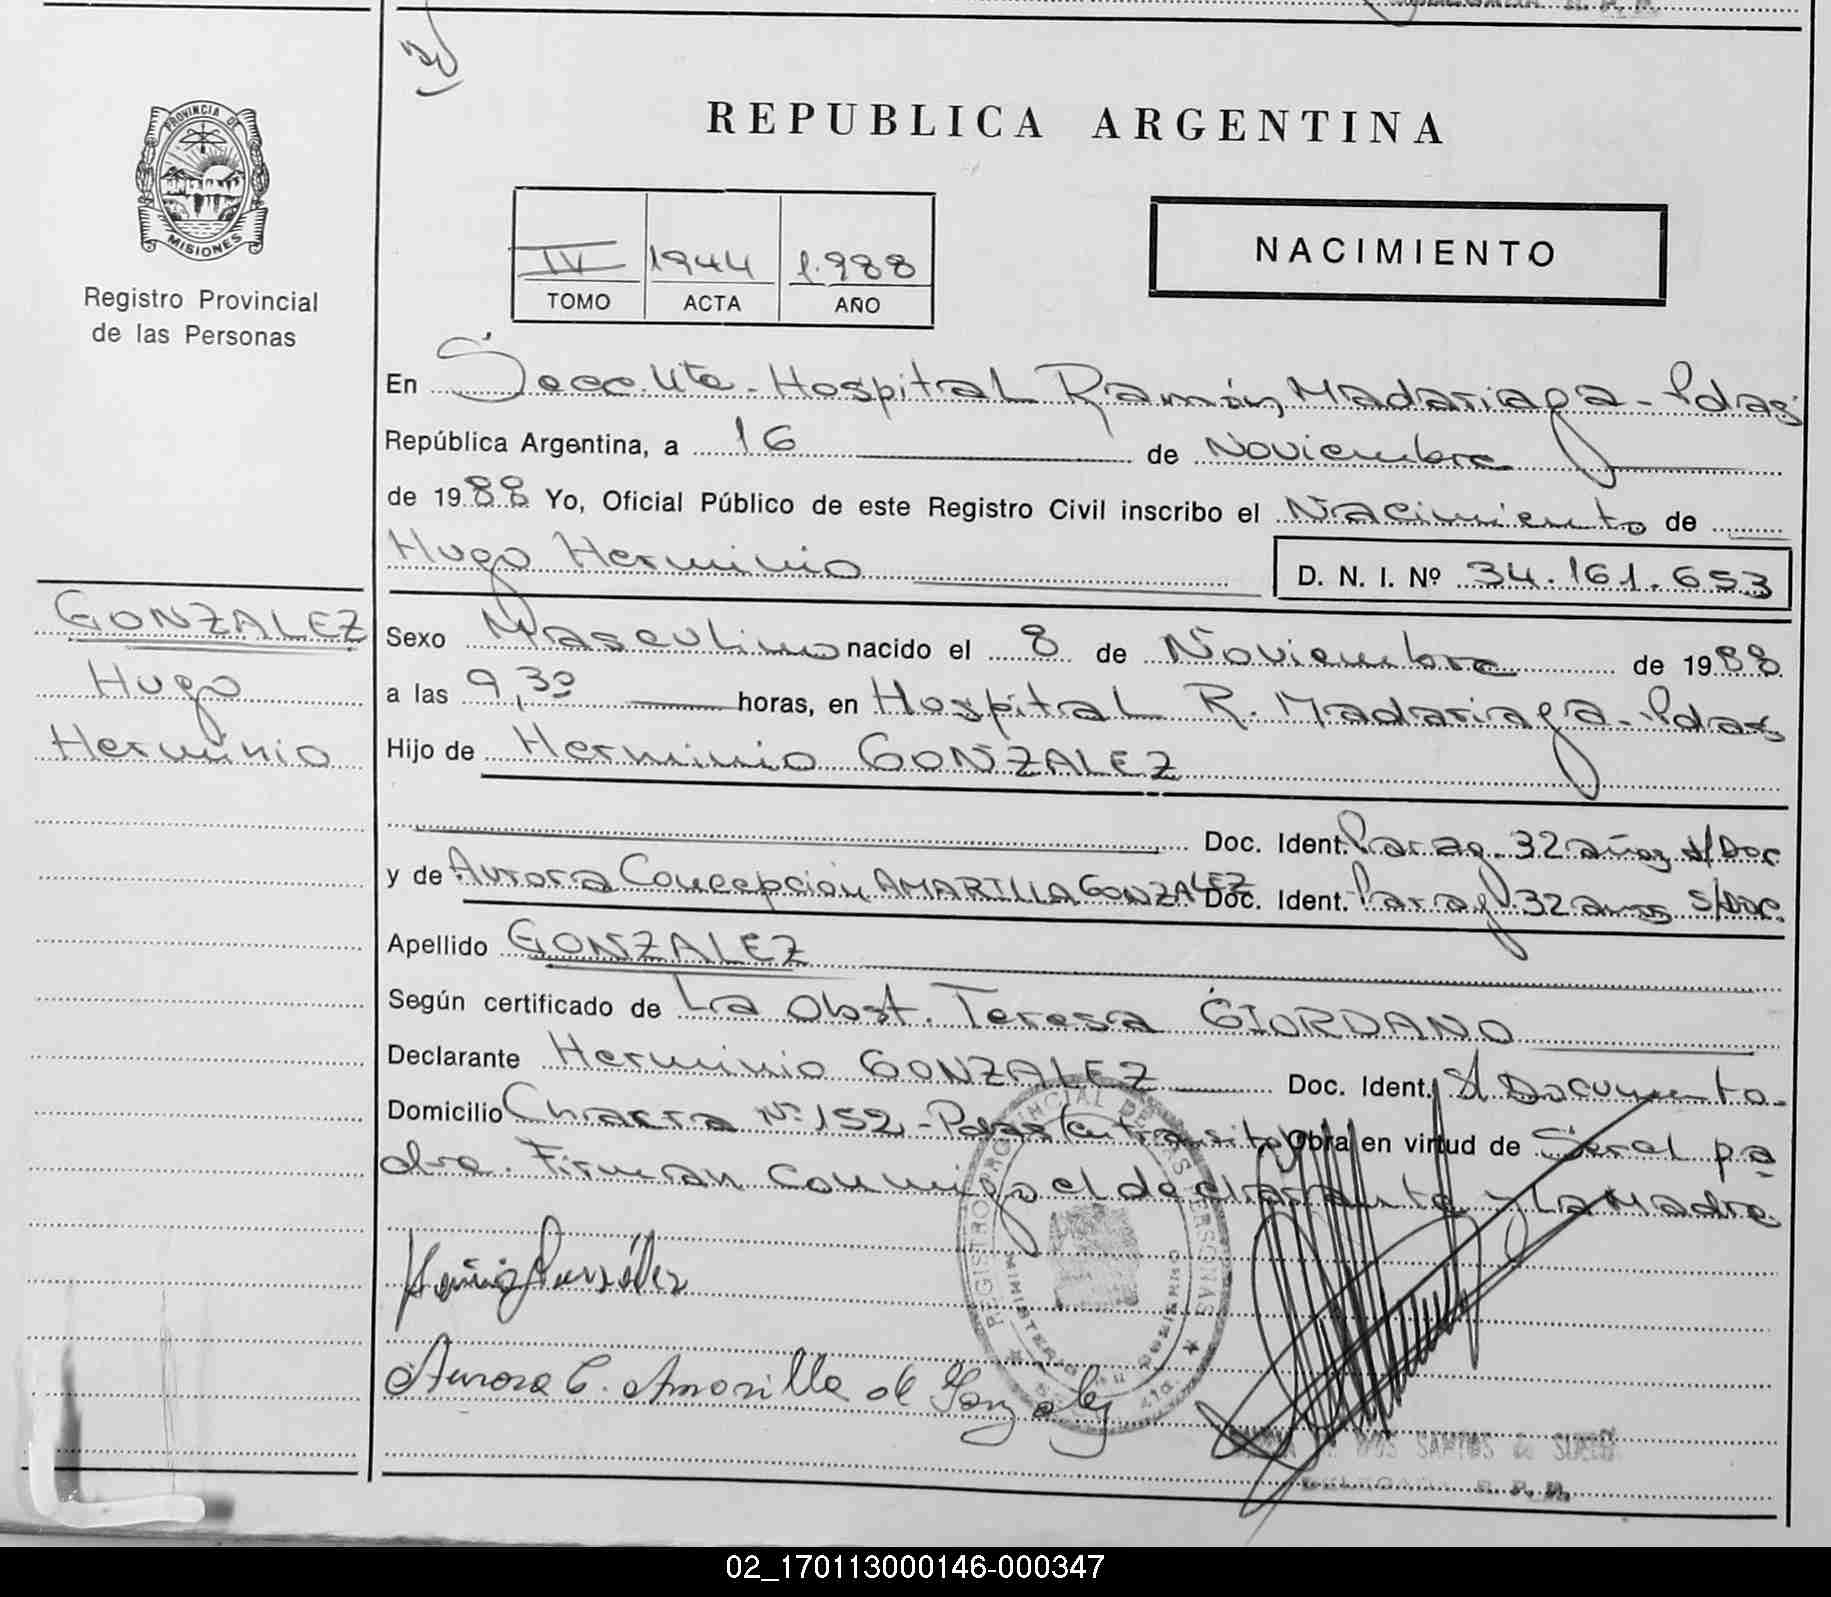 REPUBLICA ARGENTINA
PROVINCIA DE
MISIONES
Registro Provincial
de las Personas
IV 1944 1.988
TOMO ACTA AÑO
NACIMIENTO
En Secc. 4ta - Hospital Ramón Madariaga - Pdas
República Argentina, a 16 de Noviembre
de 1988 Yo, Oficial Público de este Registro Civil inscribo el Nacimiento de
Hugo Herminio D. N. I. Nº 34.161.653
GONZALEZ
Hugo
Herminio
Sexo Masculino nacido el 8 de Noviembre de 1988
a las 9,30 horas, en Hospital R. Madariaga - Pdas
Hijo de Herminio GONZALEZ
Doc. Ident. Parag. 32 años s/Doc
y de Aurora Concepción AMARILLA GONZALEZ Doc. Ident. Parag. 32 años s/Doc.
Apellido GONZALEZ
Según certificado de La Obst. Teresa GIORDANO
Declarante Herminio GONZALEZ Doc. Ident. s/ Documento.
Domicilio Chacra Nº 152 - Pdas transito Obra en virtud de Ser el pa
dre. Firman conmigo el declarante y la Madre
REGISTRO PROVINCIAL DE LAS PERSONAS
MINISTERIO DE GOBIERNO
Herminio González
Aurora C. Amarilla de Gonzalez
DOS SANTOS de
DELEGADA R. P. P.
02_170113000146-000347